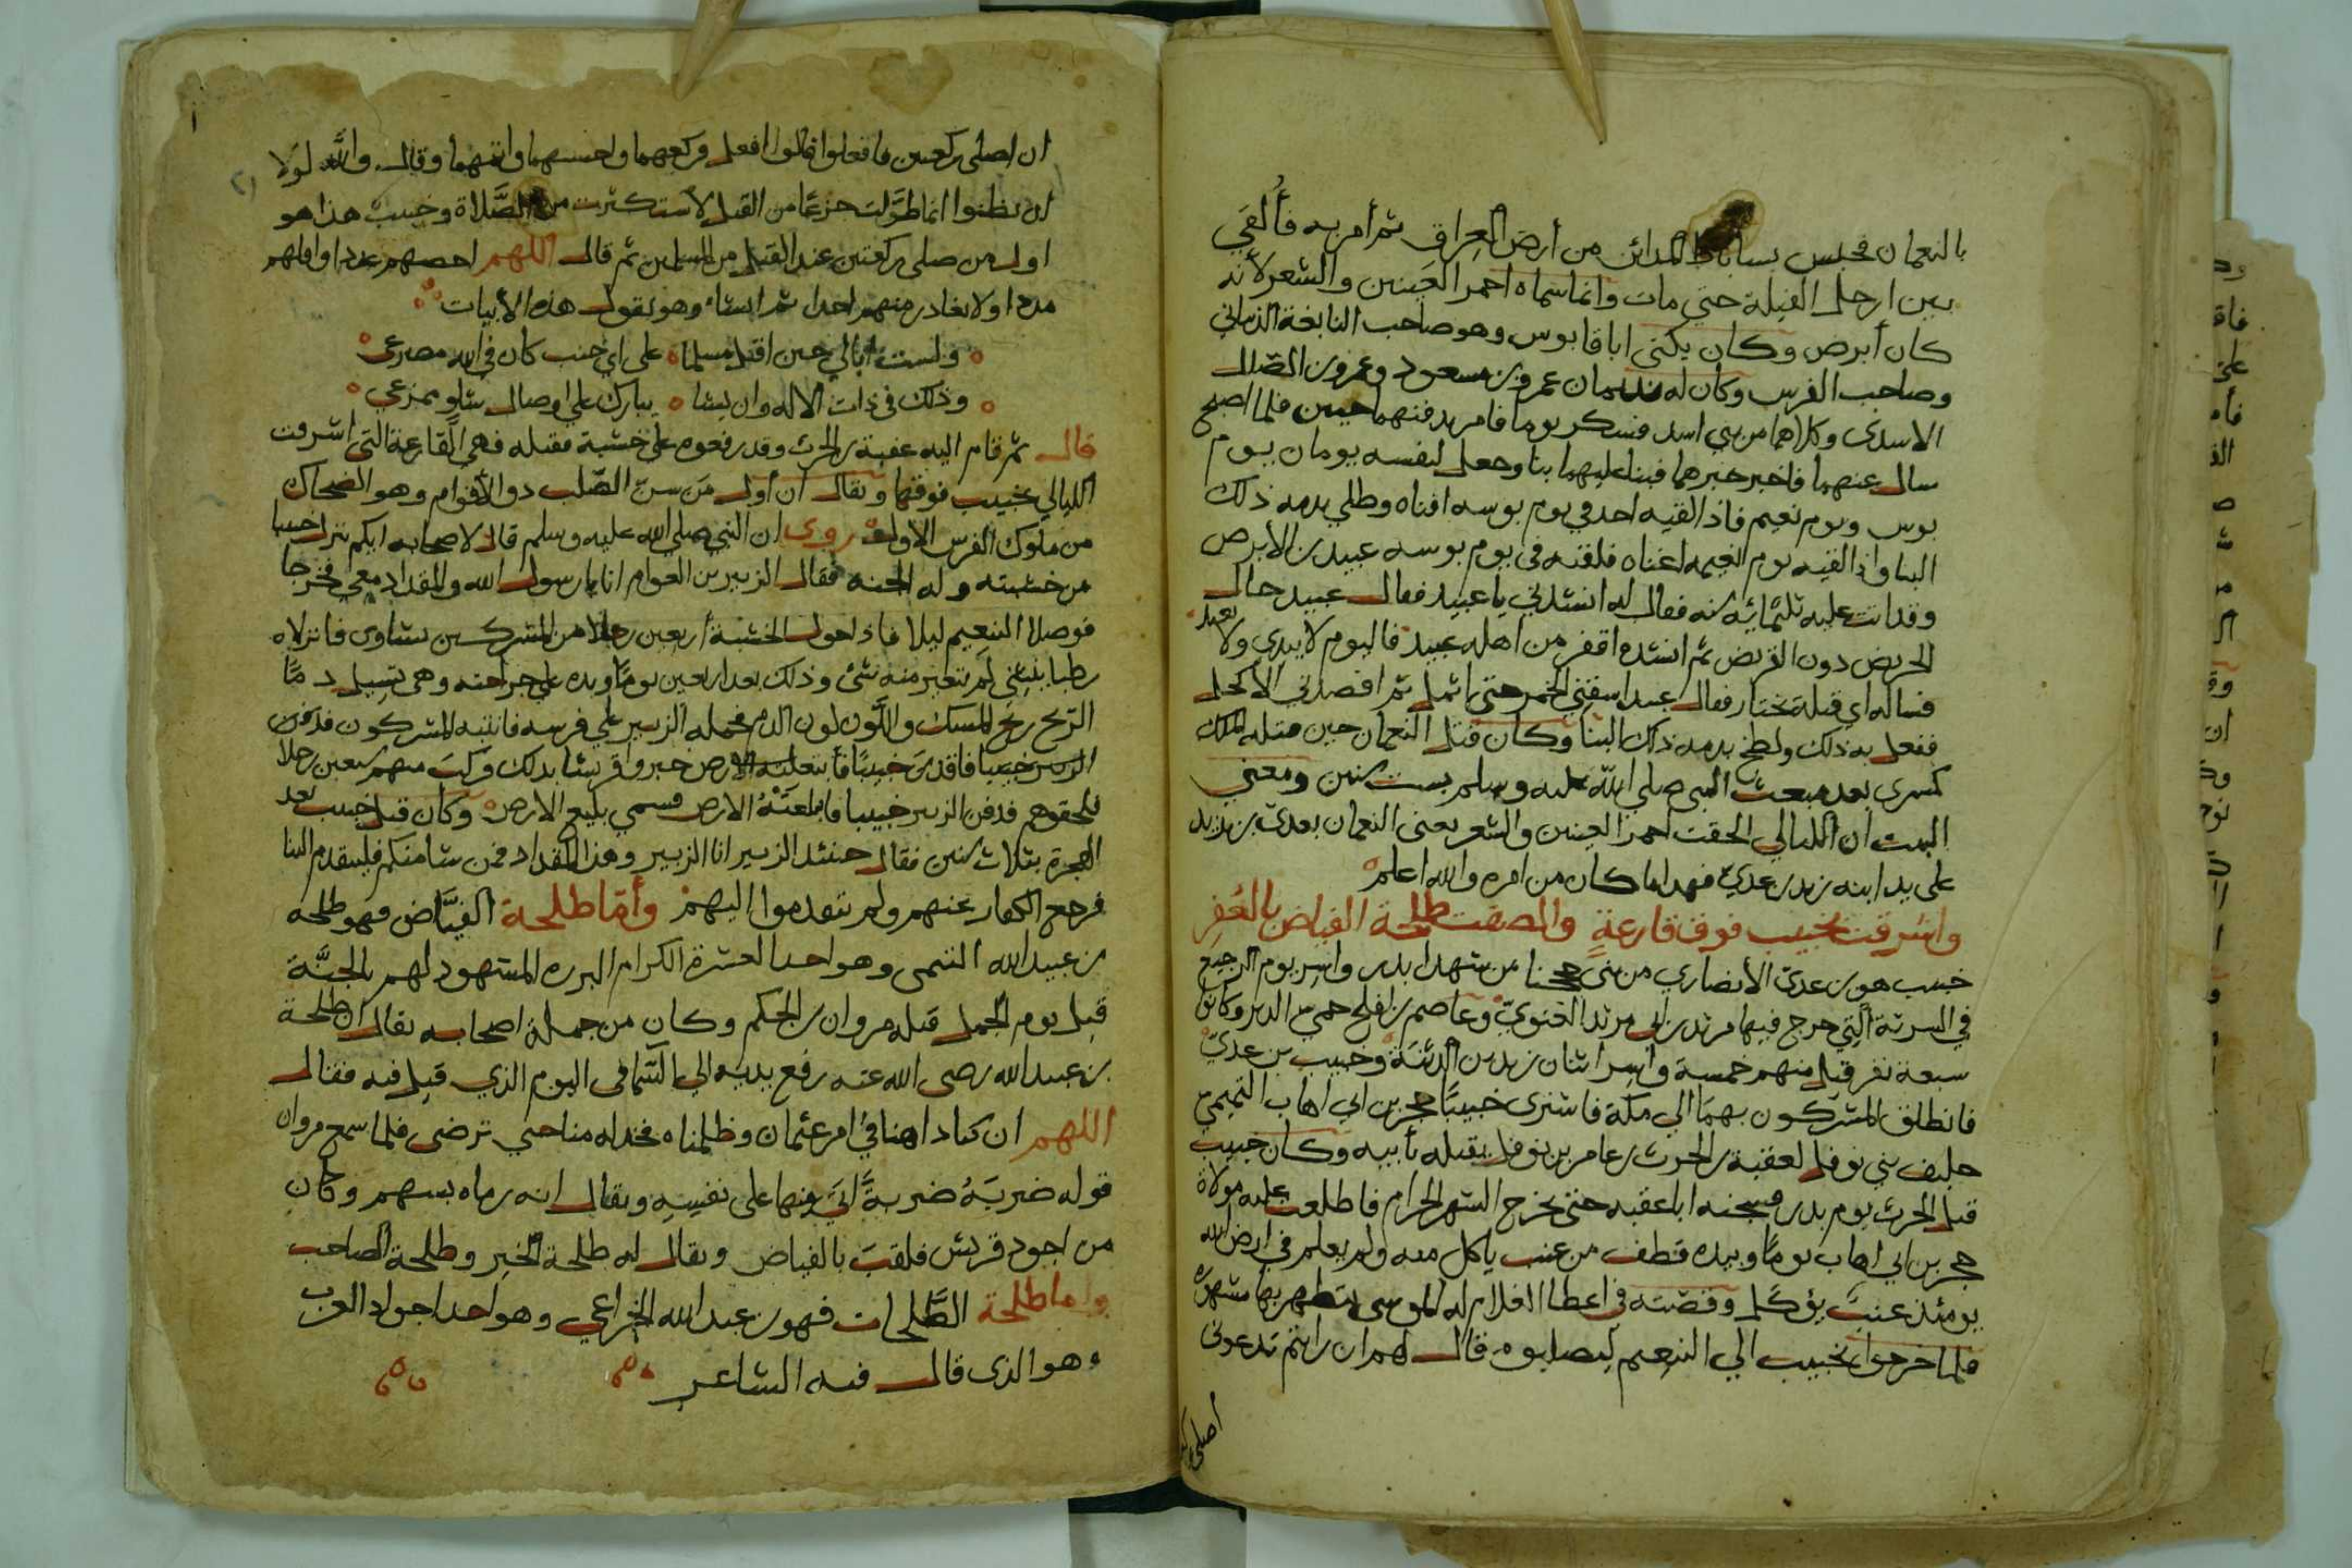 بالنعمان فحبس بساباط المدائن من أرض العراق ثم أمر به فألقي
بين ارجل الفيلة حتي مات وانما سماه احمر العينين والشعر لأنه
كان أبرص وكان يكني ابا قابوس وهو صاحب النابغة الذبياني
وصاحب الفرس وكان له نديمان عمرو بن مسعود وعمرو بن المضلل
الاسدى وكلاهما من بني اسد فسكر يوما فامر بدفنهما حيين فلما اصبح
سال عنهما فاخبر خبرهما فبنا عليهما بنا وجعل لنفسه يومان يوم
بوس ويوم نعيم فاذا لقيه احد في يوم بوسه افناه وطلي بدمه ذلك
البنا واذا لقيه يوم نعيمه اغناه فلقته في يوم بوسه عبيد بن الأبرص
وقد اتت عليه ثلثمائة سنه فقال له انشدني يا عبيد فقال عبيد حال
الجريض دون القريض ثم انشده اقفر من اهله عبيد فاليوم لا يبدي ولا يعيد
فساله اي قتلة تختار فقال عبيد اسقني الخمر حتى اثمل ثم افصدني الأكحل
ففعل به ذلك ولطخ بدمه ذلك البنا وكان قتل النعمان حين قتله الملك
كسرى بعد مبعث النبي صلي الله عليه وسلم بست سنين ومعني
البيت ان الليالي الحقت احمر العينين والشعر يعني النعمان بعدي بن زيد
على يد ابنه زيد بن عدي فهذا ما كان من امره والله اعلم
واشرقت بخبيب فوق قارعةٍ والصقت طلحة الفياض بالعُفرِ
خبيب هو بن عدي الأنصاري من بني جحجبا من شهدا بدر واسر يوم الرجيع
في السرية التي خرج فيها مرثد بن ابي مرثد الغنويّ وعاصم بن افلح حمى الدبر وكانوا
سبعة نفر قتل منهم خمسة واسر اثنان زيد بن الدثنة وخبيب بن عديّ
فانطلق المشركون بهما الي مكة فاشترى خبيبًا حجر بن ابي اهاب التميمي
حليف بني نوفل لعقبة بن الحرث بن عامر بن نوفل ليقتله بأبيه وكان خبيب
قتل الحرث يوم بدر فسجنه ابا عقبه حتى يخرج الشهر الحرام فاطلعت عليه مولاة
حجر بن ابي اهاب يومًا وبيده قطف من عنب ياكل منه ولم يعلم في ارض الله
يومئذ عنبٌ يؤكل وقصته في اعطا الغلام له الموسى يتطهر بها مشهوره
فلما خرجوا بخبيب الي التنعيم ليصلبوه قال لهم ان رايتم تدعوني
أصلي
ان اصلي ركعتين فافعلوا فقالوا افعل فركعهما واحسنهما واتمهما وقال والله لولا
ان تظنوا انما طوّلت جزعًا من القتل لاستكثرت من الصَّلاة وخبيب هذا هو
اول من صلى ركعتين عند القتل من المسلمين ثم قال اللهم احصهم عددا واقتلهم
مددا ولا تغادر منهم احدا ثم انشاء وهو يقول هذه الأبيات
ولست ابالي حين اقتل مسلما على اي جنب كان في الله مصرعى
وذلك في ذات الاله وان يشا يبارك علي اوصال شلو ممزعي
قال ثم قام اليه عقبة بن الحرث وقد رفعوه على خشبة فقتله فهي القارعة التي اشرقت
الليالي بخبيب فوقها ويقال ان أول من سن الصّلب ذو الأفوام وهو الضحاك
من ملوك الفرس الاول روى ان النبي صلي الله عليه وسلم قال لاصحابه ايكم ينزل خبيبا
من خشبته وله الجنه فقال الزبير بن العوام انا يا رسول الله والمقداد معي فخرجا
فوصلا التنعيم ليلا فاذا حول الخشبة أربعين رجلا من المشركين نشاوى فانزلاه
رطبا ينثني لم يتغير منه شئ وذلك بعد اربعين يومًا ويده على جراحته وهي تسيل دمًا
الريح ريح المسك واللون لون الدم فحمله الزبير على فرسه فانتبه المشركون فدفن
الزبير خبيبا فاقدى خبيبًا فأبتعلته الأرض خبروا قريشا بذلك وركبَ منهم سبعين رجلا
فلحقوهم فدفن الزبير خبيبا فابتلعَتْهُ الارض فسمي بليع الارض وكان قتل خبيب بعد
الهجرة بثلاث سنين فقال حينئذ الزبير انا الزبير وهذا المقداد فمن شا منكم فليتقدم الينا
فرجع الكفار عنهم ولم يتقدموا اليهم وأمّا طلحة الفيَّاض فهو طلحة
بن عبيد الله التيمى وهو احد العشرة الكرام البرره المشهود لهم بالجنَّة
قتل يوم الجمل قتله مروان بن الحكم وكان من جملة اصحابه يقال ان طلحة
بن عبيد الله رضي الله عنه رفع يديه الي السّما في اليوم الذي قتل فيه فقال
اللهم ان كنا داهنا في امر عثمان وظلمناه فخذ له منا حتي ترضى فلما سمع مروان
قوله ضربَهُ ضربةً اتى فيها على نفسِهِ ويقال انه رماه بسهم وكان
من اجود قريش فلقبَ بالفياض ويقال له طلحة الخير وطلحة الصاحب
واما طلحة الطَّلحات فهو بن عبد الله الخزاعي وهو احد اجواد العرب
وهو الذى قال فيه الشاعر